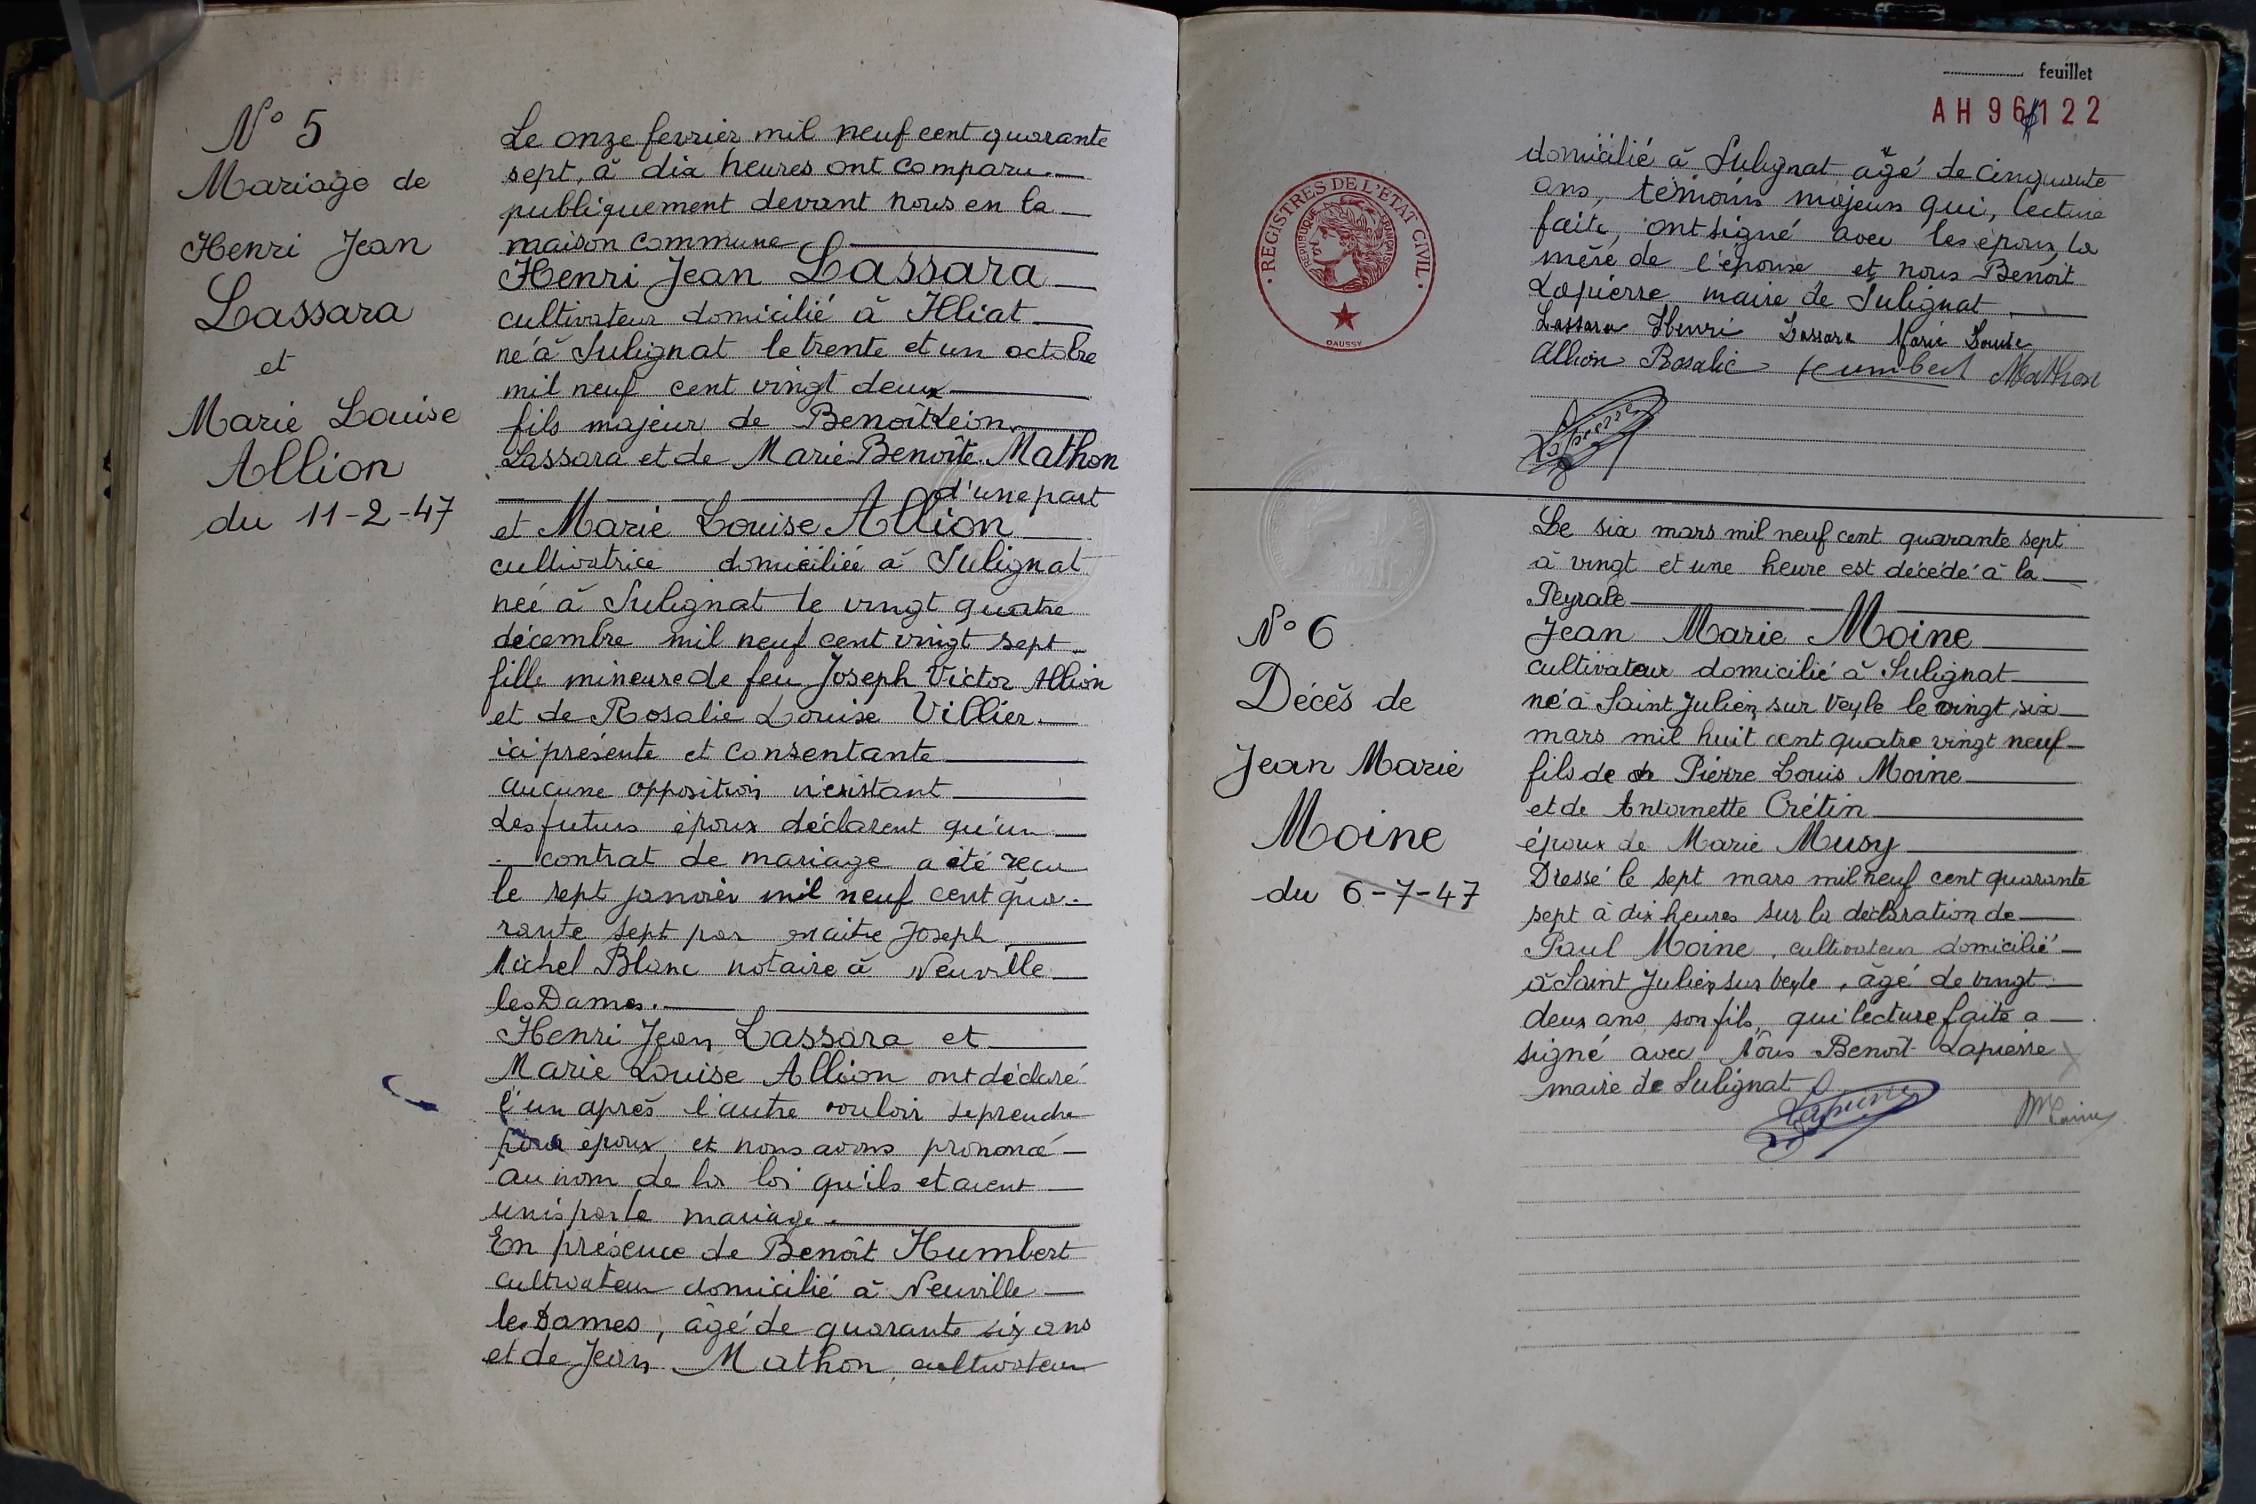 N° 5
Mariage de
Henri Jean
Lassara
et
Marie Louise
Allion
du 11-2-47
Le onze fevrier mil neuf cent quarante
sept, à dix heures ont comparu
publiquement devant nous en la
maison commune
Henri Jean Lassara
cultivateur domicilié à Illiat
né à Sulignat le trente et un octobre
mil neuf cent vingt deux
fils majeur de Benoît Léon
Lassara et de Marie Benoîte Mathon
d'une part
et Marie Louise Allion
cultivatrice domiciliée à Sulignat
née à Sulignat le vingt quatre
décembre mil neuf cent vingt sept
fille mineure de feu Joseph Victor Allion
et de Rosalie Louise Villier
ici présente et consentante
aucune opposition n'existant
Les futurs époux déclarent qu'un
contrat de mariage a été reçu
le sept janvier mil neuf cent qua-
rante sept par maître Joseph
Michel Blanc notaire à Neuville
les Dames.
Henri Jean Lassara et
Marie Louise Allion ont déclaré
l'un après l'autre vouloir se prendre
pour époux et nous avons prononcé
au nom de la loi qu'ils etaient
unis par le mariage.
En présence de Benoît Humbert
cultivateur domicilié à Neuville
les Dames, âgé de quarante six ans
et de Jean Mathon, cultivateur
feuillet
AH 96122
REGISTRES DE L'ETAT CIVIL
REPUBLIQUE FRANÇAISE
DAUSSY
domicilié à Sulignat âgé de cinquante
ans, témoins majeurs qui, lecture
faite, ont signé avec les époux, la
mère de l'épouse et nous Benoît
Lapierre maire de Sulignat
Lassara Henri Lassara Marie Louise
Allion Rosalie Humbert Mathon
Lapierre
N° 6
Décès de
Jean Marie
Moine
du 6-7-47
Le six mars mil neuf cent quarante sept
à vingt et une heure est décédé à la
Peyrale
Jean Marie Moine
cultivateur domicilié à Sulignat
né à Saint Julien sur Veyle le vingt six
mars mil huit cent quatre vingt neuf
fils de Pierre Louis Moine
et de Antoinette Crétin
époux de Marie Musy
Dressé le sept mars mil neuf cent quarante
sept à dix heures sur la déclaration de
Paul Moine, cultivateur domicilié
à Saint Julien sur Veyle, âgé de vingt
deux ans, son fils, qui lecture faite a
signé avec Nous Benoît Lapierre
maire de Sulignat
Lapierre Moine